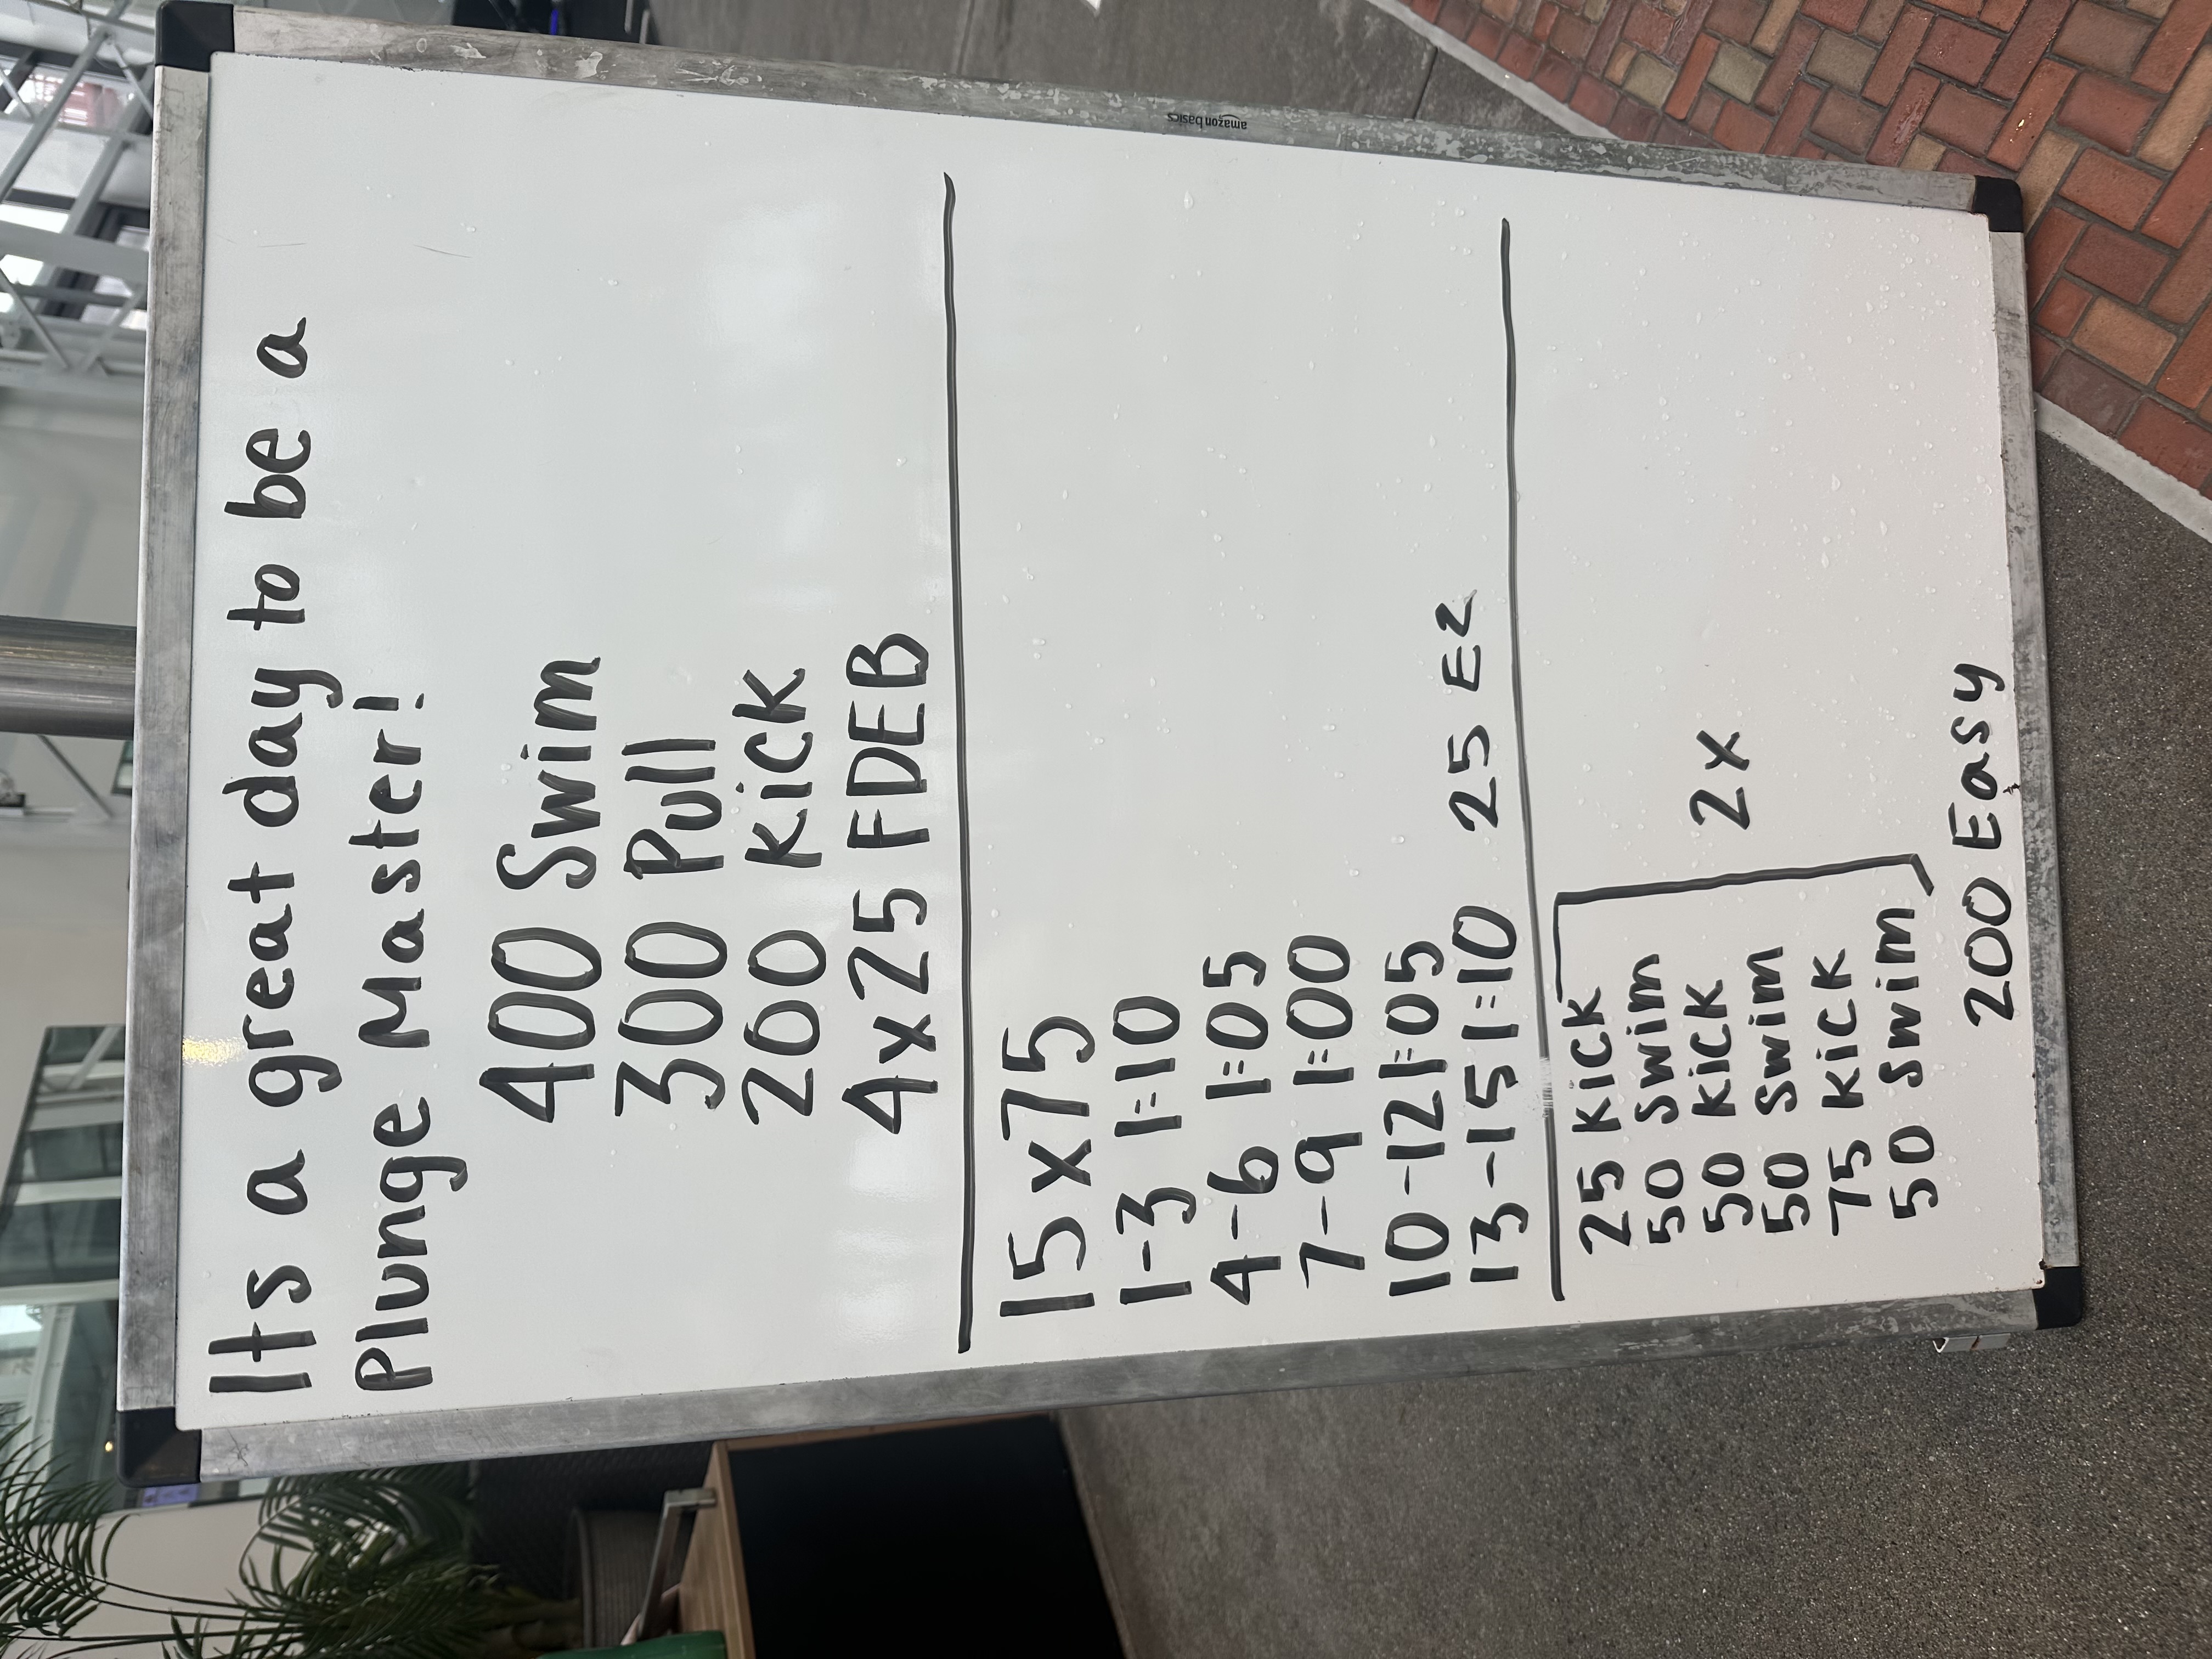 Its a great day to be a
Plunge Master!
400 Swim
300 Pull
200 Kick
4x25 FDEB
15x75
1-3 1:10
4-6 1:05
7-9 1:00
10-12 1:05
13-15 1:10 25 EZ
25 Kick
50 Swim
50 Kick
50 Swim
75 Kick
50 Swim
2x
200 Easy
amazon basics